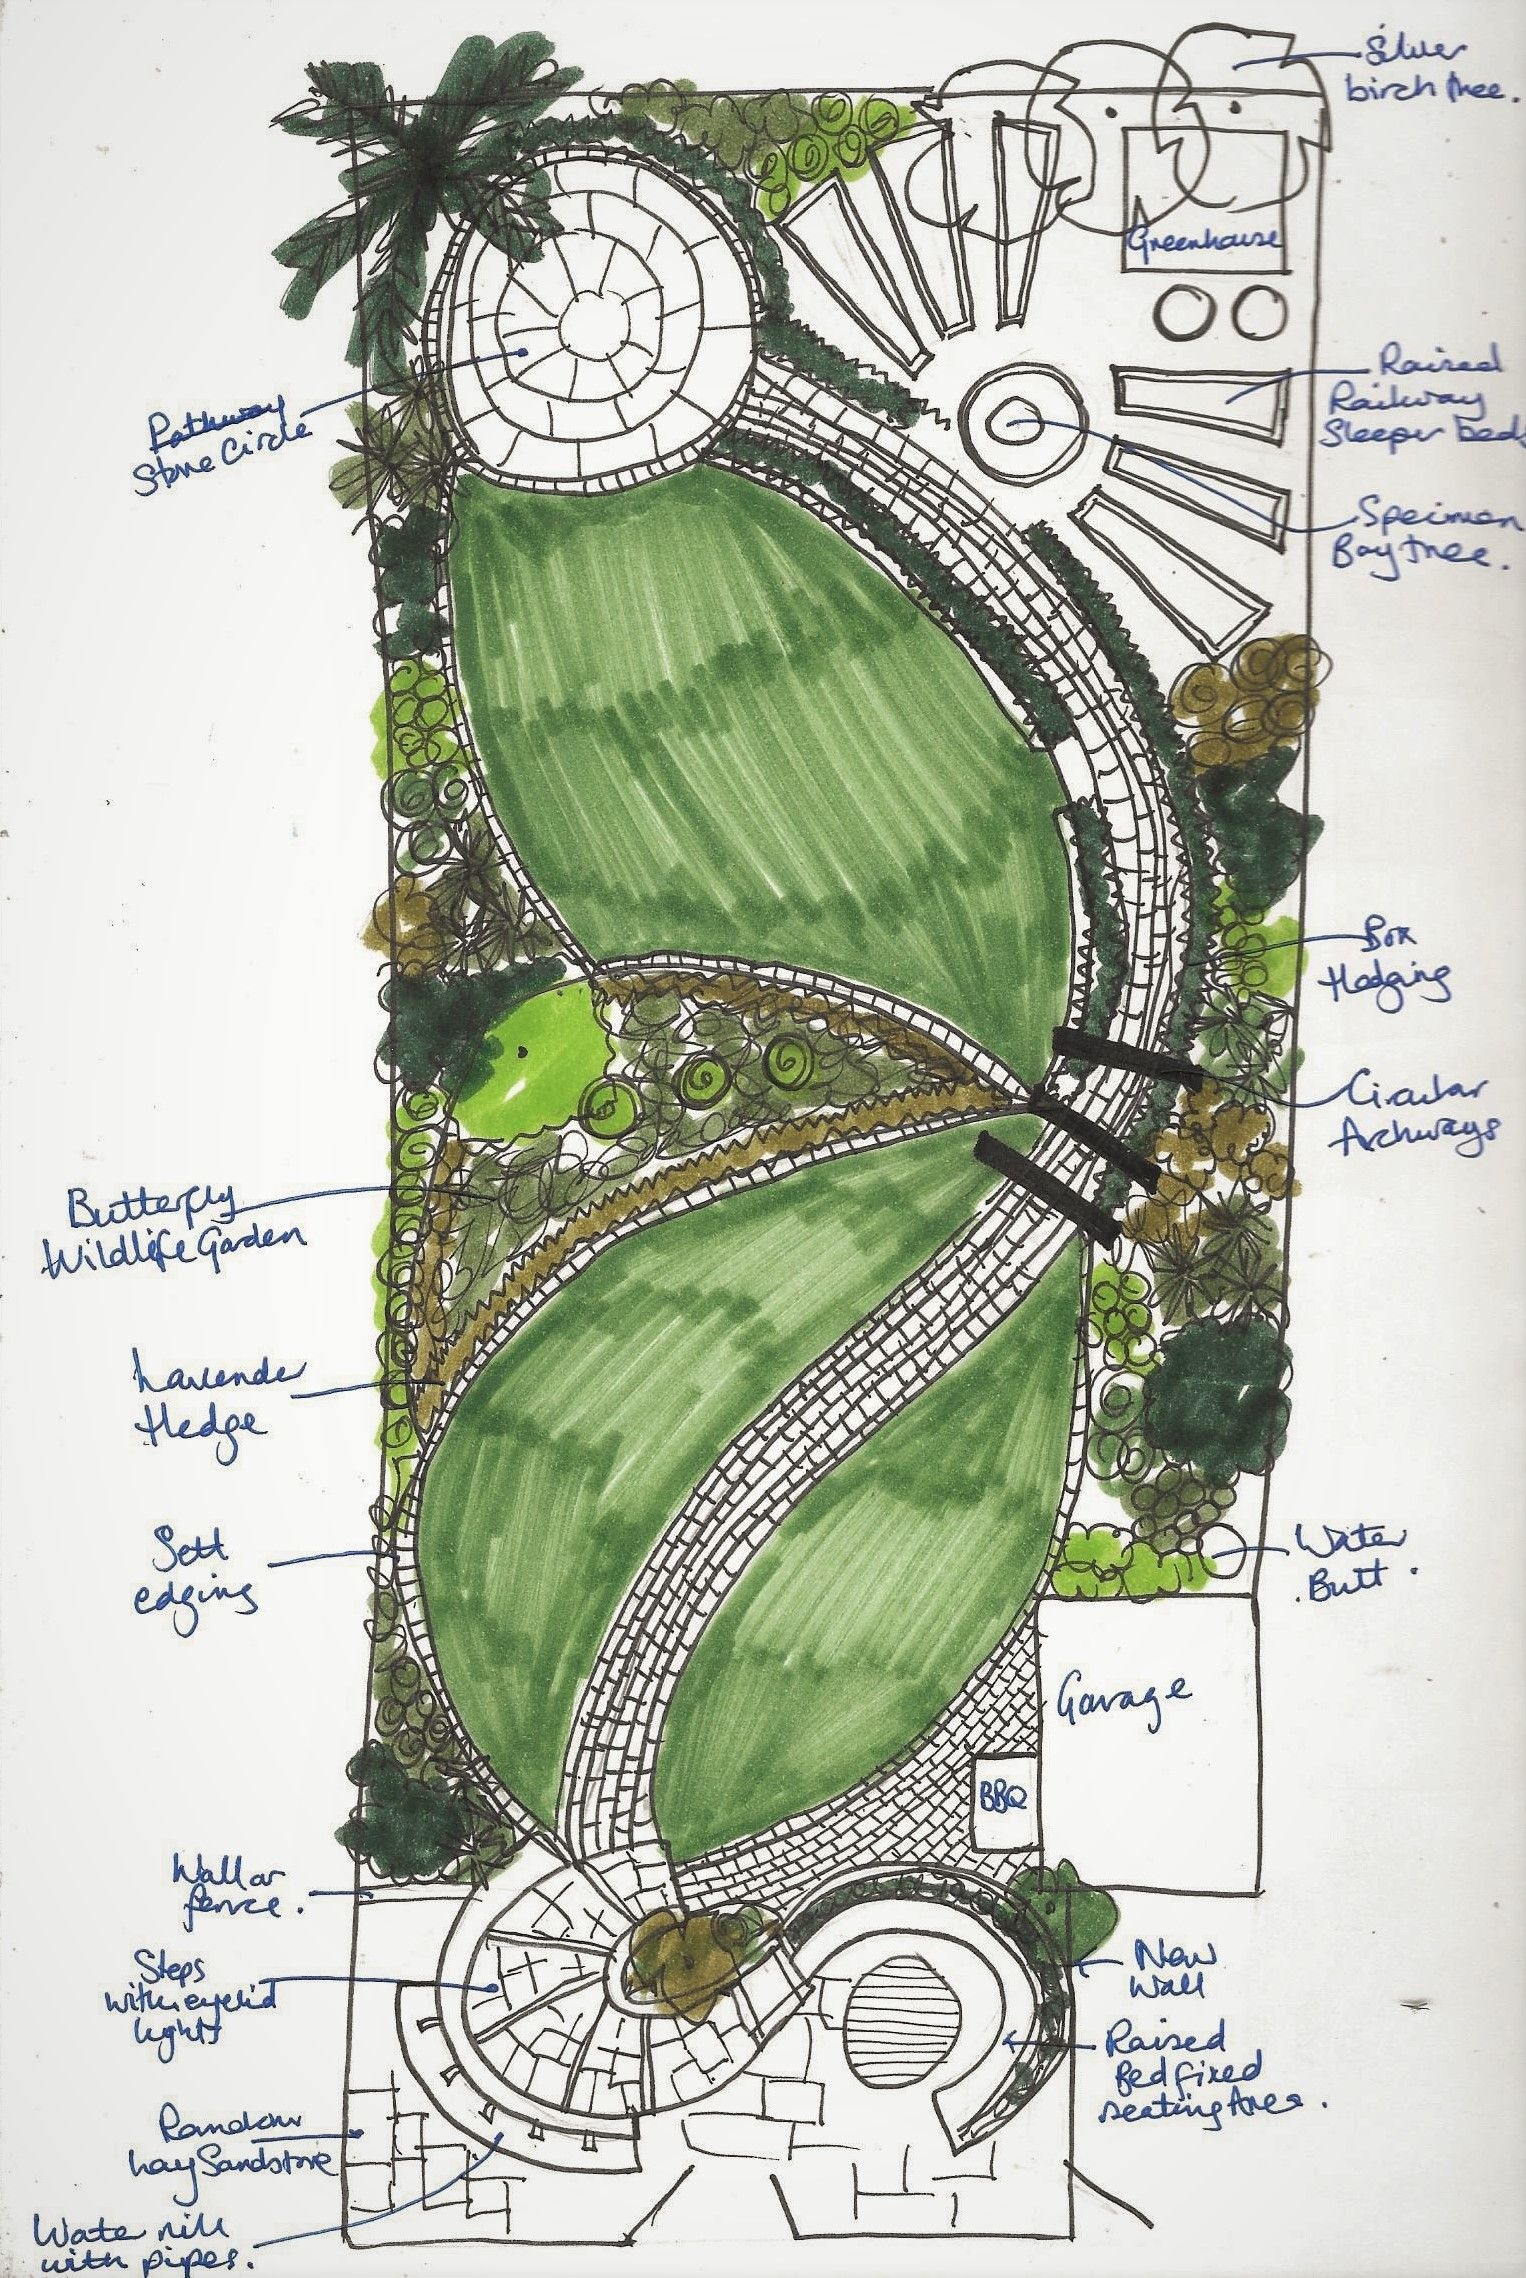 Silver
birch tree.
Greenhouse
Raised
Railway
Sleeper beds
Pathway
Stone Circle
Specimen
Bay tree.
Box
Hedging
Circular
Archways
Butterfly
Wildlife Garden
Lavender
Hedge
Sett
edging
Water
Butt.
Garage
BBQ
Wall or
fence.
Steps
with eyelid
lights
New
Wall
Raised
Bed fixed
seating Area.
Random
Lay Sandstone
Water rill
with pipes.